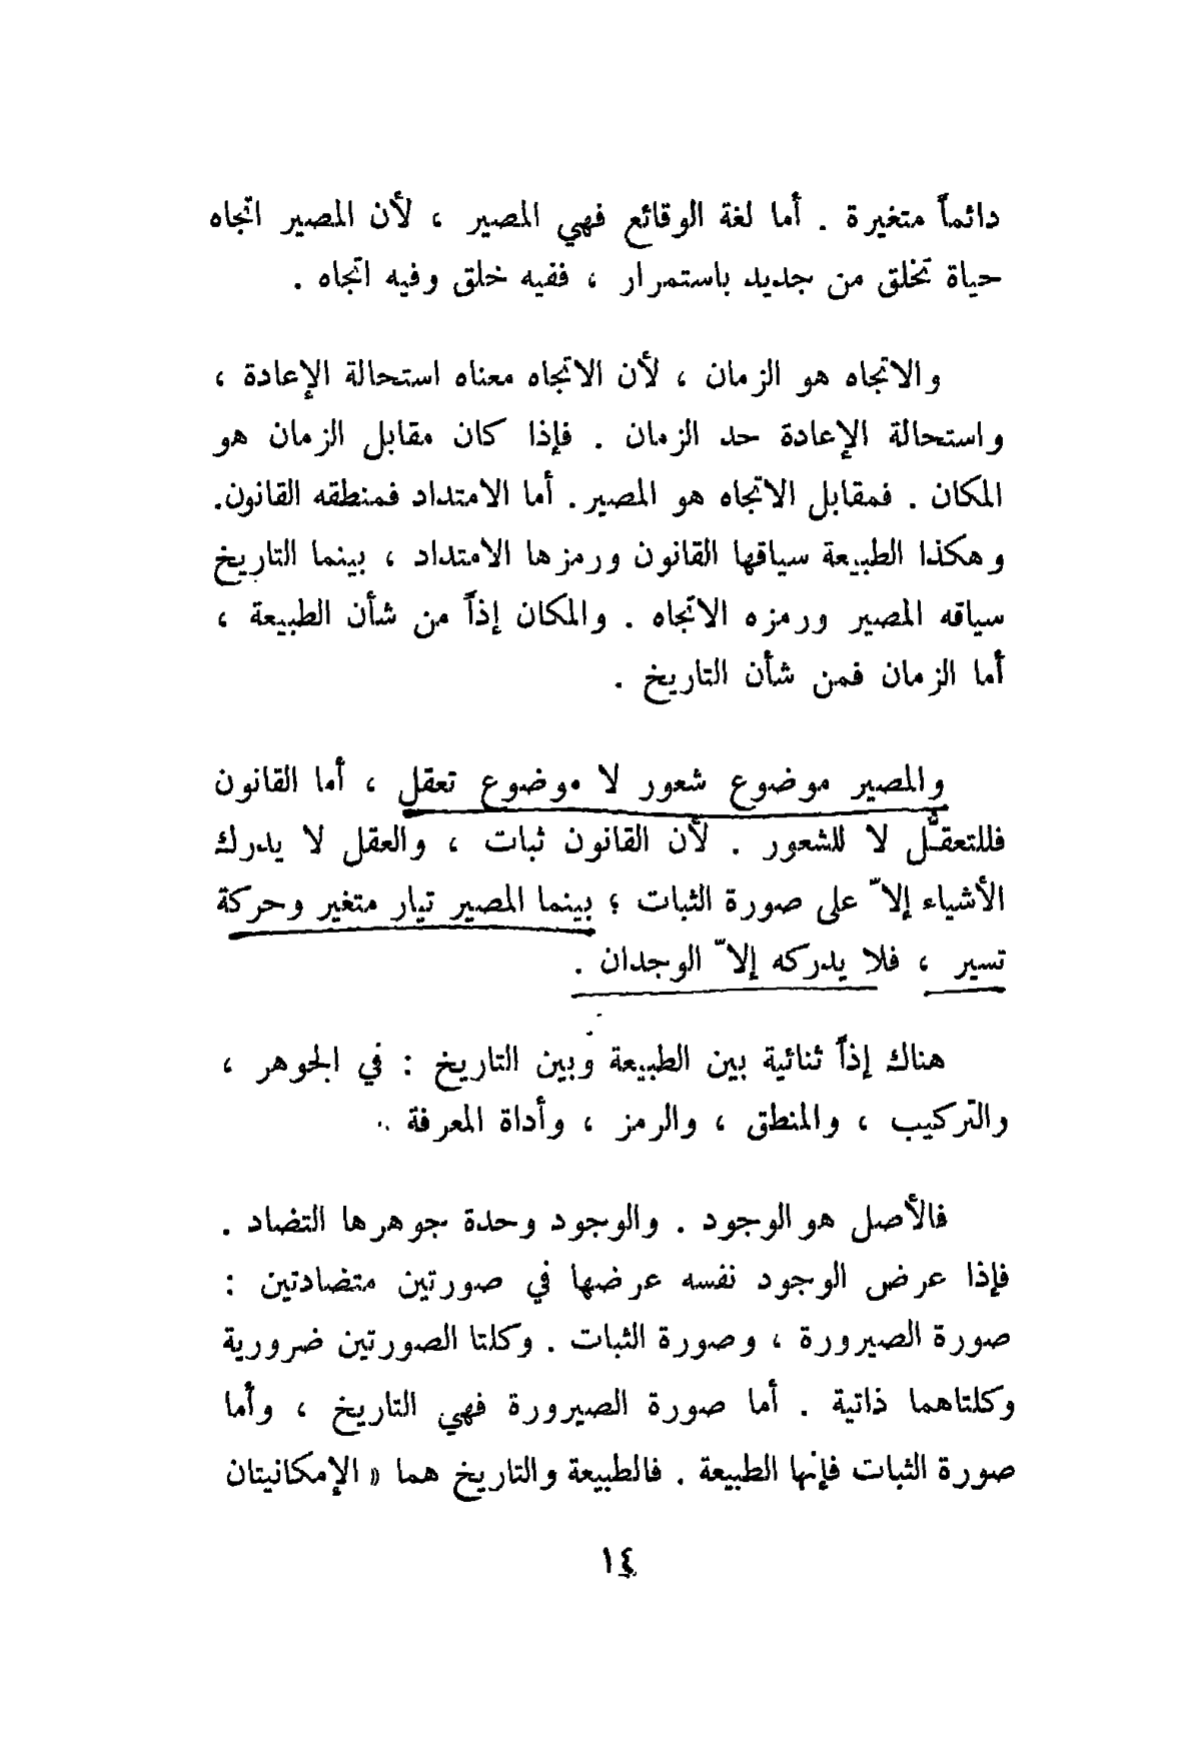 دائماً متغيرة . أما لغة الوقائع فهي المصير ، لأن المصير اتجاه
حياة تخلق من جديد باستمرار ، ففيه خلق وفيه اتجاه .
والاتجاه هو الزمان ، لأن الاتجاه معناه استحالة الإعادة ،
واستحالة الإعادة حد الزمان . فإذا كان مقابل الزمان هو
المكان . فمقابل الاتجاه هو المصير . أما الامتداد فمنطقه القانون .
وهكذا الطبيعة سياقها القانون ورمزها الامتداد ، بينما التاريخ
سياقه المصير ورمزه الاتجاه . والمكان إذاً من شأن الطبيعة ،
أما الزمان فمن شأن التاريخ .
والمصير موضوع شعور لا موضوع تعقل ، أما القانون
فللتعقُّل لا للشعور . لأن القانون ثبات ، والعقل لا يدرك
الأشياء إلاّ على صورة الثبات ؛ بينما المصير تيار متغير وحركة
تسير ، فلا يدركه إلاّ الوجدان .
هناك إذاً ثنائية بين الطبيعة وبين التاريخ : في الجوهر ،
والتركيب ، والمنطق ، والرمز ، وأداة المعرفة .
فالأصل هو الوجود . والوجود وحدة جوهرها التضاد .
فإذا عرض الوجود نفسه عرضها في صورتين متضادتين :
صورة الصيرورة ، وصورة الثبات . وكلتا الصورتين ضرورية
وكلتاهما ذاتية . أما صورة الصيرورة فهي التاريخ ، وأما
صورة الثبات فإنها الطبيعة . فالطبيعة والتاريخ هما « الإمكانيتان
١٤